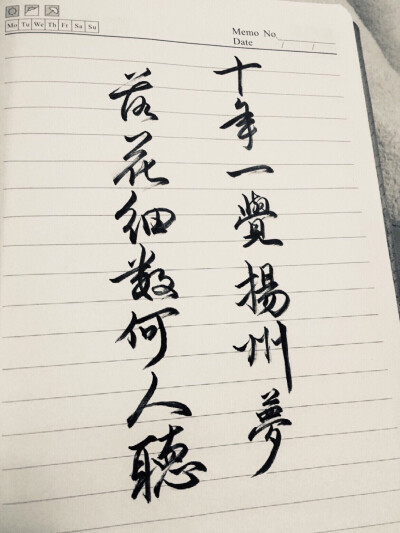 Mo Tu We Th Fr Sa Su
Memo No.
Date / /
十年一覺揚州夢
落花细数何人聽